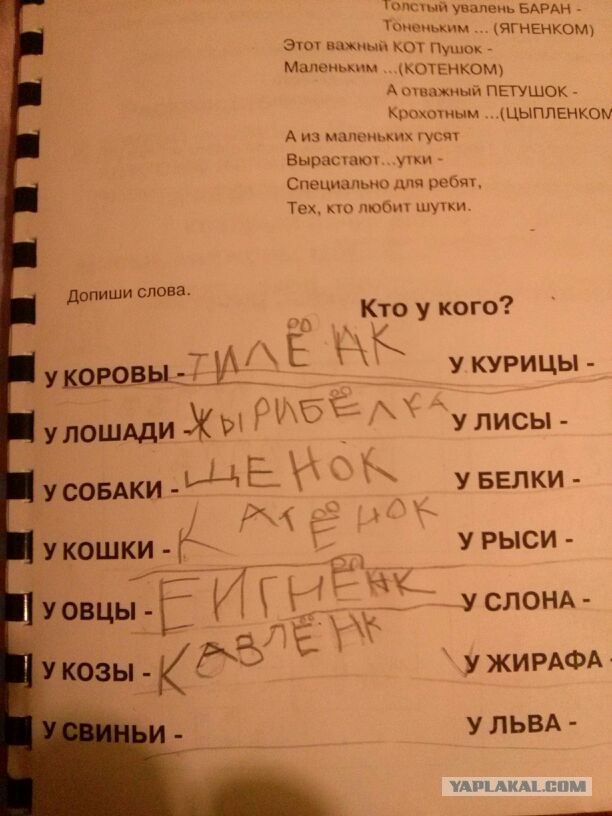 Толстый увалень БАРАН -
Тоненьким ... (ЯГНЕНКОМ)
Этот важный КОТ Пушок -
Маленьким ...(КОТЕНКОМ)
А отважный ПЕТУШОК -
Крохотным ...(ЦЫПЛЕНКОМ
А из маленьких гусят
Вырастают...утки -
Специально для ребят,
Тех, кто любит шутки.
Допиши слова.
Кто у кого?
У КОРОВЫ - ТИЛЁНК У КУРИЦЫ -
У ЛОШАДИ - ЖЫРИБЁЛКА У ЛИСЫ -
У СОБАКИ - ЩЕНОК У БЕЛКИ -
У КОШКИ - КАТЁНОК У РЫСИ -
У ОВЦЫ - ЕИГНЁНК У СЛОНА -
У КОЗЫ - КАВЗЛЁНК У ЖИРАФА -
У СВИНЬИ - У ЛЬВА -
YAPLAKAL.COM